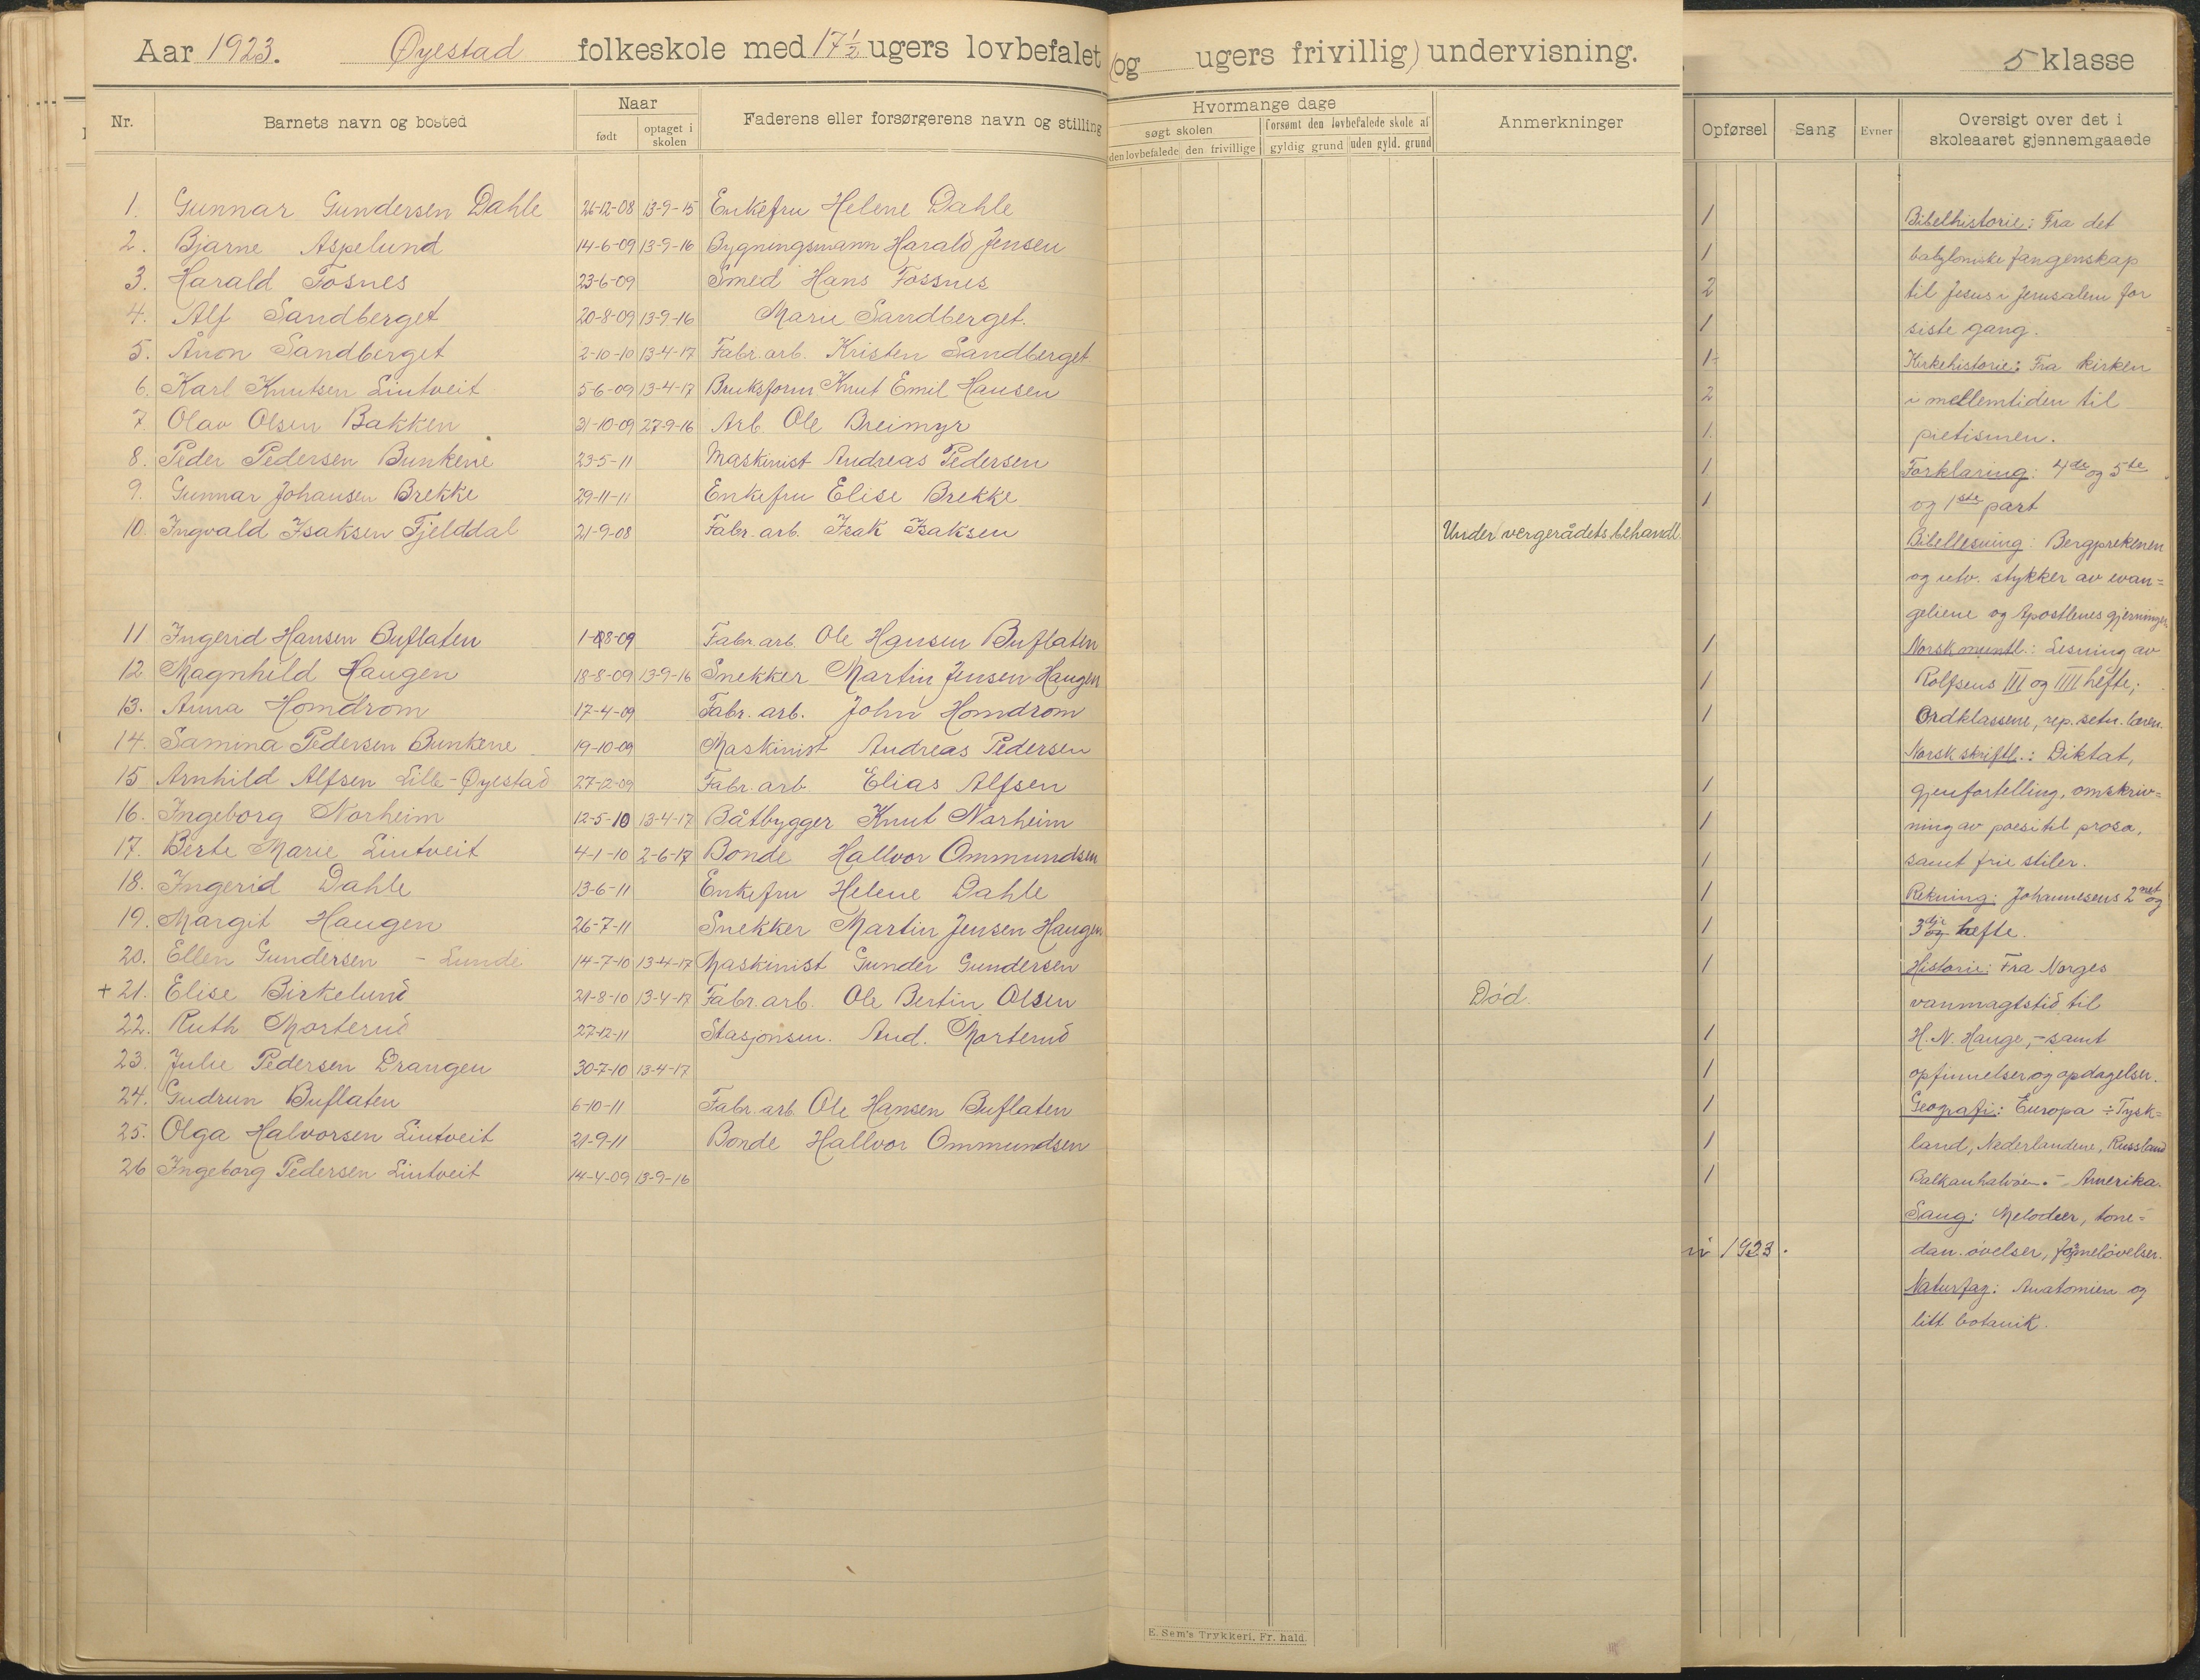 Aar 1923. Øyestad folkeskole med 17 1/2 ugers lovbefalet (og ugers frivillig) undervisning. 5 klasse
Nr. Barnets navn og bosted Naar født optaget i skolen Faderens eller forsørgerens navn og stilling
Hvormange dage Anmerkninger Opførsel Sang Evner Oversigt over det i skoleaaret gjennemgaaede
søgt skolen forsømt den lovbefalede skole af
den lovbefalede den frivillige gyldig grund uden gyld. grund
1. Gunnar Gundersen Dahle 26-12-08 13-9-15 Enkefru Helene Dahle 1
2. Bjarne Aspelund 14-6-09 13-9-16 Bygningsmann Harald Jensen 1
3. Harald Fosnes 23-6-09 Smed Hans Fossnes 2
4. Alf Sandberget 20-8-09 13-9-16 Marie Sandberget. 1
5. Ånon Sandberget 2-10-10 13-4-17 Fabr. arb. Kristen Sandberget 1-
6. Karl Knutsen Lintveit 5-6-09 13-4-17 Bruksform Knut Emil Hansen 2
7. Olav Olsen Bakken 31-10-09 27-9-16 Arb. Ole Breimyr 1.
8. Peder Pedersen Bunkene 23-5-11 Maskinist Andreas Pedersen 1
9. Gunnar Johansen Brekke 29-11-11 Enkefru Elise Brekke 1
10. Ingvald Isaksen Fjelddal 21-9-08 Fabr. arb. Isak Isaksen Under vergerådets behandl.
11 Ingerid Hansen Buflaten 1-8-09 Fabr. arb. Ole Hansen Buflaten 1
12 Magnhild Haugen 18-8-09 13-9-16 Snekker Martin Jensen Haugen 1
13. Anna Homdrom 17-4-09 Fabr. arb. John Homdrom 1
14. Samina Pedersen Bunkene 19-10-09 Maskinist Andreas Pedersen
15 Arnhild Alfsen Lille-Øyestad 27-12-09 Fabr. arb. Elias Alfsen 1
16. Ingeborg Norheim 12-5-10 13-4-17 Båtbygger Knut Norheim 1
17. Berte Marie Lintveit 4-1-10 2-6-17 Bonde Hallvor Ommundsen 1
18. Ingerid Dahle 13-6-11 Enkefru Helene Dahle 1
19. Margit Haugen 26-7-11 Snekker Martin Jensen Haugen 1
20. Ellen Gundersen - Lunde 14-7-10 13-4-17 Maskinist Gunder Gundersen 1
+ 21. Elise Birkelund 21-8-10 13-4-17 Fabr. arb. Ole Bertin Olsen Død.
22. Ruth Morterud 27-12-11 Stasjonsm. And. Morterud 1
23. Julie Pedersen Drangen 30-7-10 13-4-17 1
24. Gudrun Buflaten 6-10-11 Fabr. arb. Ole Hansen Buflaten 1
25. Olga Halvorsen Lintveit 21-9-11 Bonde Hallvor Ommundsen 1
26 Ingeborg Pedersen Lintveit 14-4-09 13-9-16 1
1923.
Bibelhistorie: Fra det
babyloniske fangenskap
til Jesus i Jerusalem for
siste gang.
Kirkehistorie: Fra kirken
i mellemtiden til
pietismen.
Forklaring: 4de og 5te
og 1ste part
Bibellesning: Bergprekenen
og utv. stykker av evan=
geliene og Apostlenes gjerninger
Norsk muntl.: Lesning av
Rolfsens III og IIII hefte;
Ordklassene, rep. setn. læren.
Norsk skriftl.: Diktat,
gjenfortelling, omskriv=
ning av poesi til prosa,
samt frie stiler.
Rekning: Johannesens 2net og
3dje hefte.
Historie: Fra Norges
vanmagtstid til
H. N. Hauge, - samt
opfinnelser og opdagelser.
Geografi: Europa ÷ Tysk=
land, Nederlandene, Russland
Balkanhalvøen. - Amerika.
Sang: Melodier, tone=
dan. øvelser,
Naturfag: Anatomien og
litt botanik.
E. Sem's Trykkeri, Fr. hald.